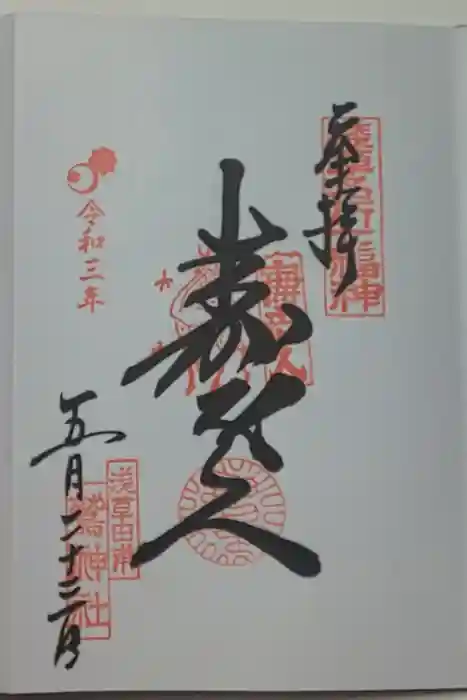 奉拝
浅草名所七福神
壽老人
壽老人
令和三年
五月二十三日
浅草田甫
鷲神社